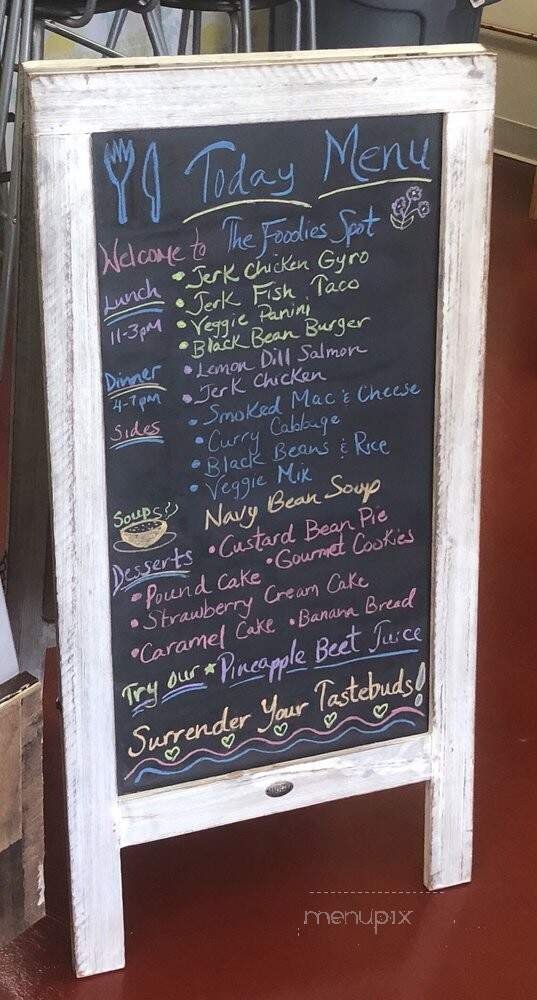 Today Menu
Welcome to The Foodies Spot
Lunch
11-3pm
• Jerk Chicken Gyro
• Jerk Fish Taco
• Veggie Panini
• Black Bean Burger
Dinner
4-7pm
• Lemon Dill Salmon
• Jerk Chicken
Sides
• Smoked Mac & Cheese
• Curry Cabbage
• Black Beans & Rice
• Veggie Mix
Soups
Navy Bean Soup
Desserts
• Custard Bean Pie
• Pound Cake • Gourmet Cookies
• Strawberry Cream Cake
• Caramel Cake • Banana Bread
Try our ★ Pineapple Beet Juice
Surrender Your Tastebuds!
menupix